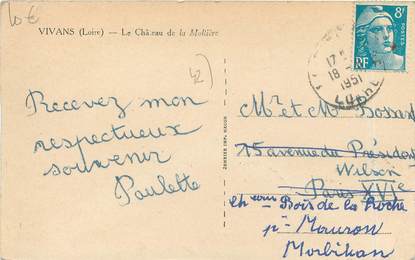 10€
VIVANS (Loire) — Le Château de la Molière
8F
POSTES
RF
17
18
1951
42
Recevez mon
respectueux
souvenir
Paulette
Mr et Mme Bossart
75 avenue du Président
Wilson
Paris XVIe
Bois de la Roche
pr Mauron
Morbihan